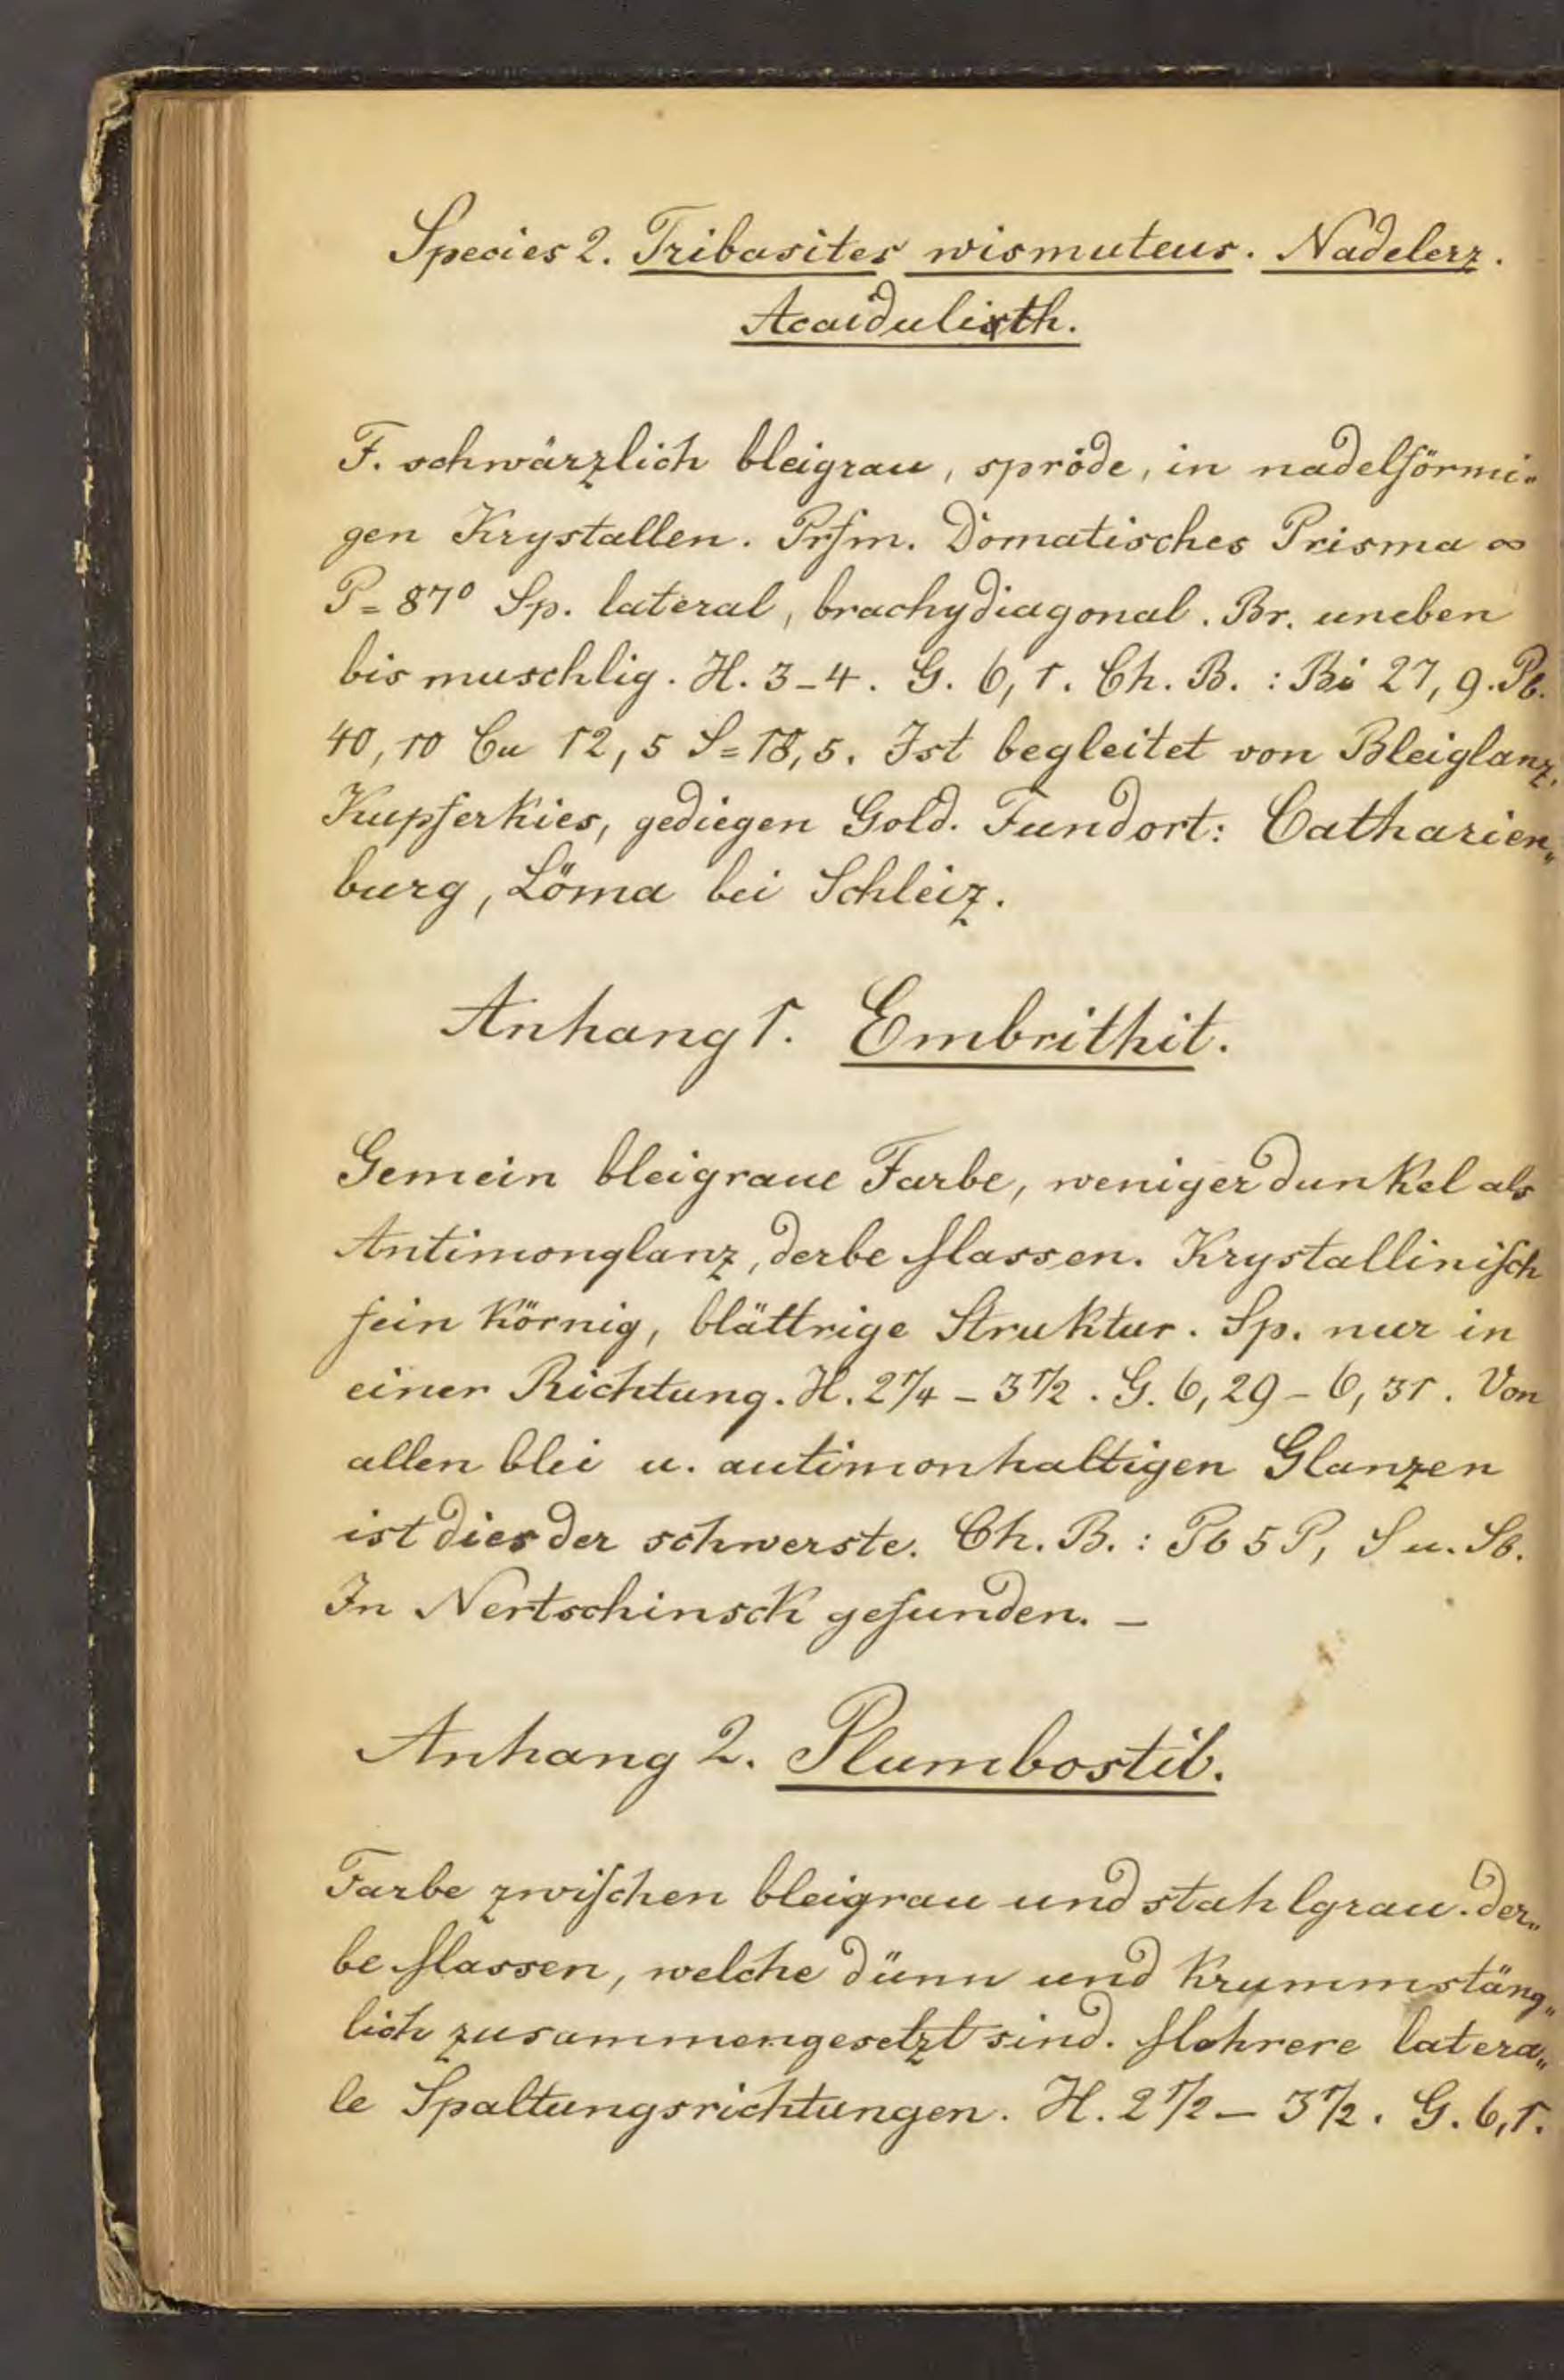 Species 2. Tribasites wismuteus. Nadelerz.
Acaidulith.
F. schwärzlich bleigrau, spröde, in nadelförmi-
gen Krystallen. Prfm. Domatisches Prisma ∞
P= 87° Sp. lateral, brachydiagonal. Br. uneben
bis muschlig. H. 3-4. G. 6,1. Ch. B. : Bi 27,9. Pb.
40,10 Cu 12,5 S=18,5. Ist begleitet von Bleiglanz,
Kupferkies, gediegen Gold. Fundort: Catharien„
burg, Löma bei Schleiz.
Anhang 1. Embrithit.
Gemein bleigraue Farbe, weniger dunkel als
Antimonglanz, derbe Massen. Krystallinisch
fein körnig, blättrige Struktur. Sp. nur in
einer Richtung. H. 2 1/4 - 3 1/2. G. 6,29 - 6,31. Von
allen blei u. antimonhaltigen Glanzen
ist dies der schwerste. Ch. B. : Pb 5 P, S u. Sb.
In Nertschinsck gefunden. –
Anhang 2. Plumbostib.
Farbe zwischen bleigrau und stahlgrau. der„
be Massen, welche dünn und krummstäng„
lich zusammengesetzt sind. Mehrere latera„
le Spaltungsrichtungen. H. 2 1/2 – 3 1/2. G. 6,1.